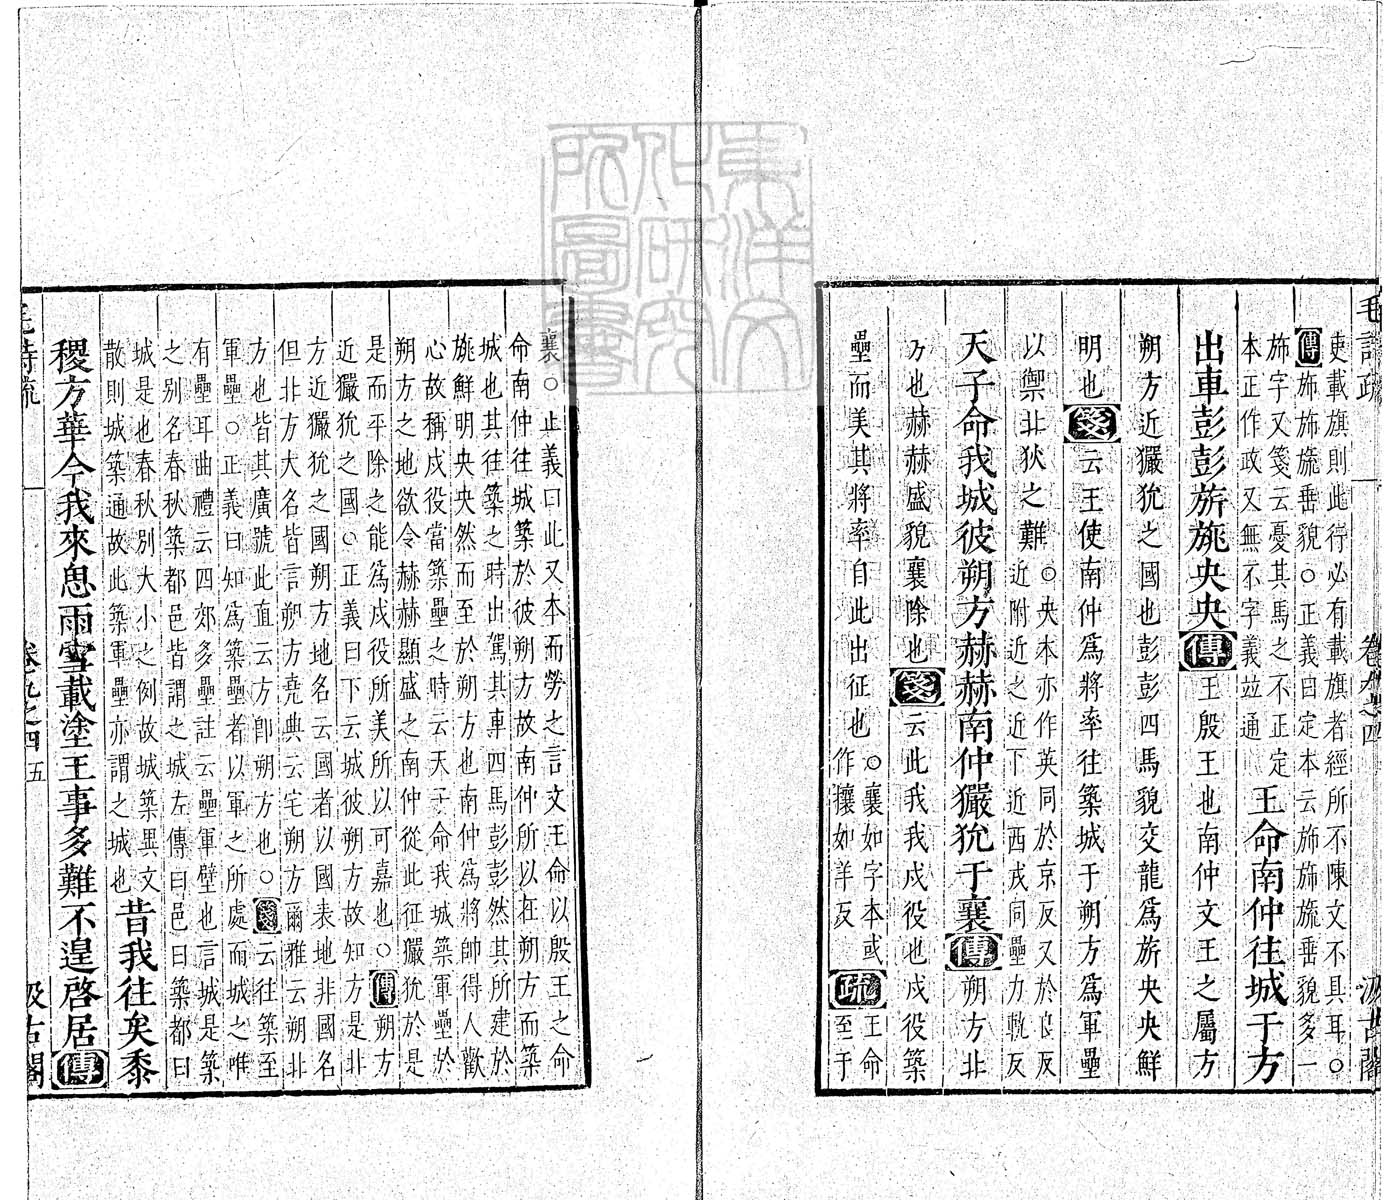 毛詩疏 卷九之四 汲古閣
吏載旗則此行必有載旗者經所不陳文不具耳○
傳旆旆旒垂貌○正義曰定本云旆旆旒垂貌多一
旆字又箋云憂其馬之不正定
本正作政又無不字義並通
王命南仲往城于方
出車彭彭旂旐央央傳王殷王也南仲文王之屬方
朔方近玁狁之國也彭彭四馬貌交龍爲旂央央鮮
明也箋云王使南仲爲將率往築城于朔方爲軍壘
以禦北狄之難
○央本亦作英同於京反又於良反
近附近之近下近西戎同壘力軌反
天子命我城彼朔方赫赫南仲玁狁于襄傳朔方北
方也赫赫盛貌襄除也箋云此我我戍役也戍役築
壘而美其將率自此出征也
○襄如字本或
作攘如羊反
疏
王命
至于
襄○正義曰此又本而勞之言文王命以殷王之命
命南仲往城築於彼朔方故南仲所以在朔方而築
城也其往築之時出駕其車四馬彭彭然其所建於
旐鮮明央央然而至於朔方也南仲爲將帥得人歡
心故稱戍役當築壘之時云天子命我城築軍壘於
朔方之地欲令赫赫顯盛之南仲從此征玁狁於是
是而平除之能爲戍役所美所以可嘉也○傳朔方
近玁狁之國○正義曰下云城彼朔方故知方是北
方近玁狁之國朔方地名云國者以國表地非國名
但北方大名皆言朔方堯典云宅朔方爾雅云朔北
方也皆其廣號此直云方卽朔方也○箋云往築至
軍壘○正義曰知爲築壘者以軍之所處而城之唯
有壘耳曲禮云四郊多壘註云壘軍壁也言城是築
之别名春秋築都邑皆謂之城左傳曰邑曰築都曰
城是也春秋别大小之例故城築異文
散則城築通故此築軍壘亦謂之城也
昔我往矣黍
稷方華今我來思雨雪載塗王事多難不遑啓居傳
毛詩疏 卷九之四 五 汲古閣
東洋文化研究所圖書